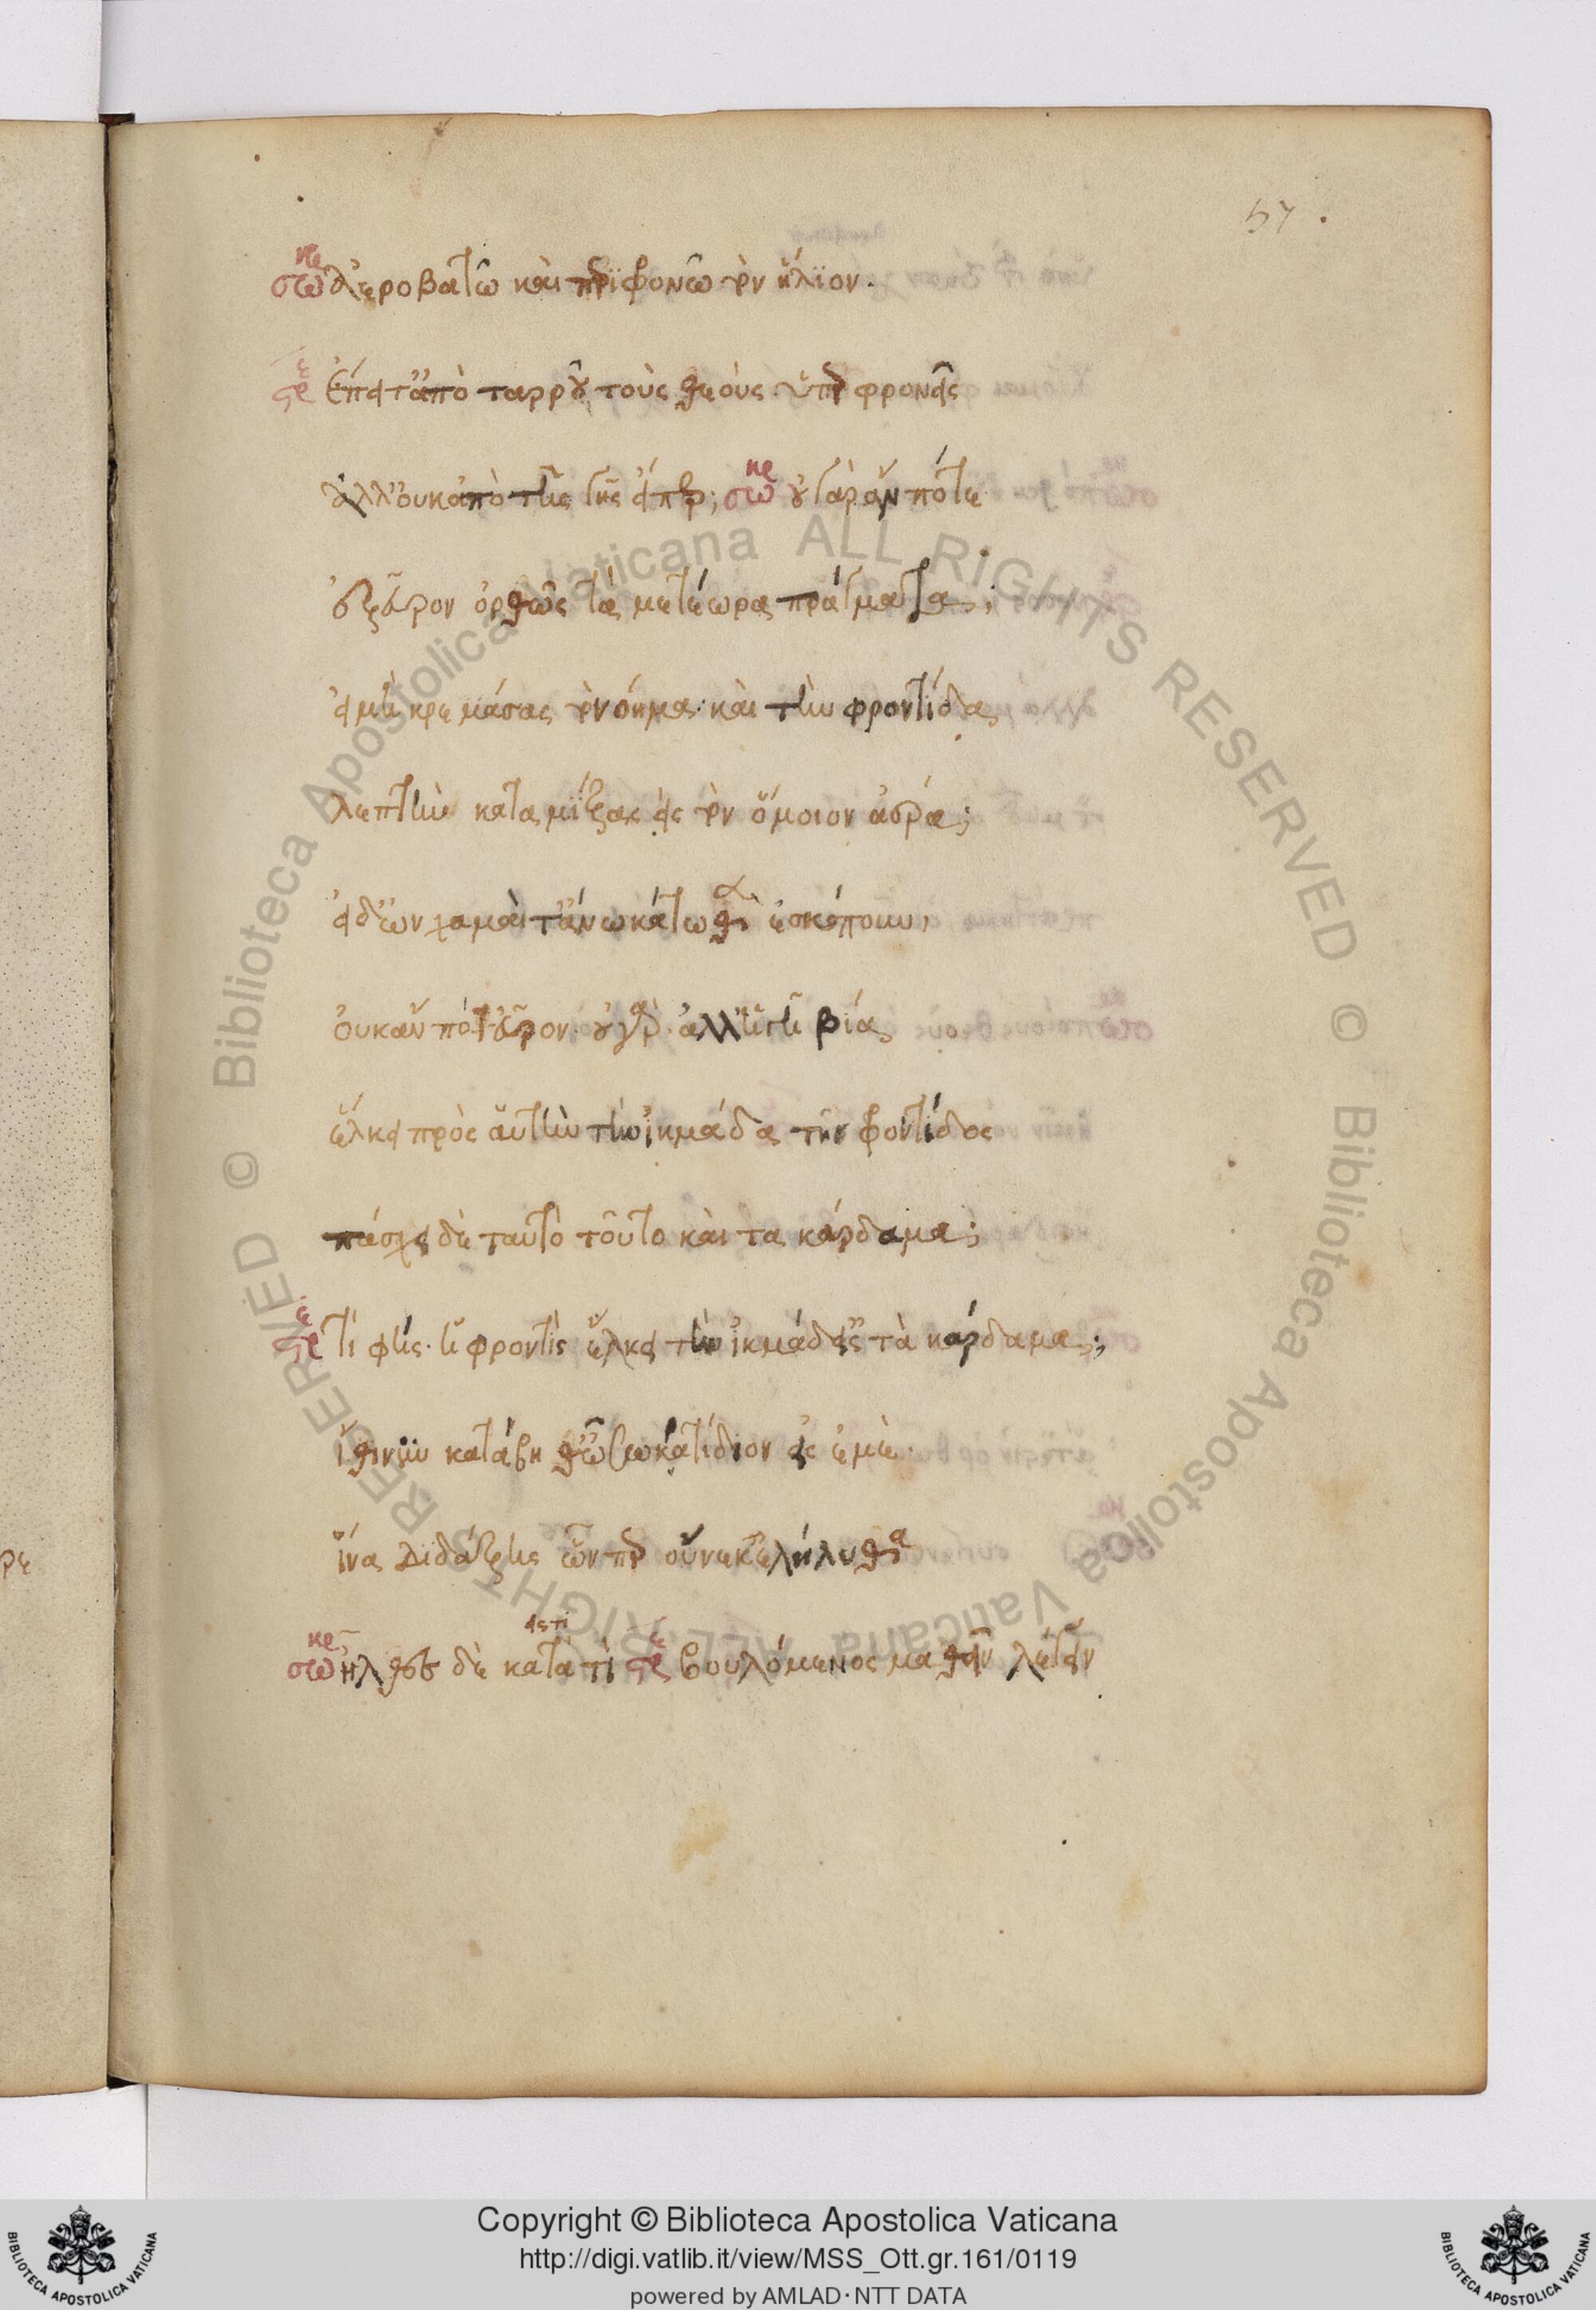 57.
σωκρ ἀεροβατῶ καὶ περιφρονῶ τὸν ἥλϊον.
στρε ἔπειτ' ἀπὸ ταρροῦ τοὺς θεοὺς ὑπερφρονεῖς
ἀλλ' οὐκ ἀπὸ τῆς γῆς εἴπερ; σωκρ οὐ γὰρ ἄν πότε
ἐξεῦρον ὀρθῶς τὰ μετέωρα πράγματα;
εἰ μὴ κρεμάσας τὸ νόημα καὶ τὴν φροντίδα
λεπτὴν καταμίξας εἰς τὸν ὅμοιον ἀέρα;
εἰ δ' ὢν χαμαὶ τἄνω κάτωθεν ἐσκόπουν,
οὐκ ἄν πόθ' εὗρον. οὐ γὰρ ἀλλ' ἡ γῆ βία
ἕλκει πρὸς αὑτὴν τὴν ἰκμάδα τῆς φροντίδος
πάσχει δὲ ταυτὸ τοῦτο καὶ τα κάρδαμα;
στρε τί φής. ἡ φροντὶς ἕλκει τὴν ἰκμάδ' εἰς τὰ κάρδαμα;
ἴθι νῦν κατάβηθ' ὦ Σωκρατίδιον εἰς ἐμὲ.
ἵνα διδάξῃς ὧνπερ οὕνεκ' ἐλήλυθα
σωκρ ἦλθες δὲ κατὰ τί στρε βουλόμενος μαθεῖν λέγειν
Biblioteca Apostolica Vaticana ALL RIGHTS RESERVED © Biblioteca Apostolica Vaticana ALL RIGHTS RESERVED ©
Copyright © Biblioteca Apostolica Vaticana
http://digi.vatlib.it/view/MSS_Ott.gr.161/0119
powered by AMLAD·NTT DATA
BIBLIOTECA APOSTOLICA VATICANA
BIBLIOTECA APOSTOLICA VATICANA